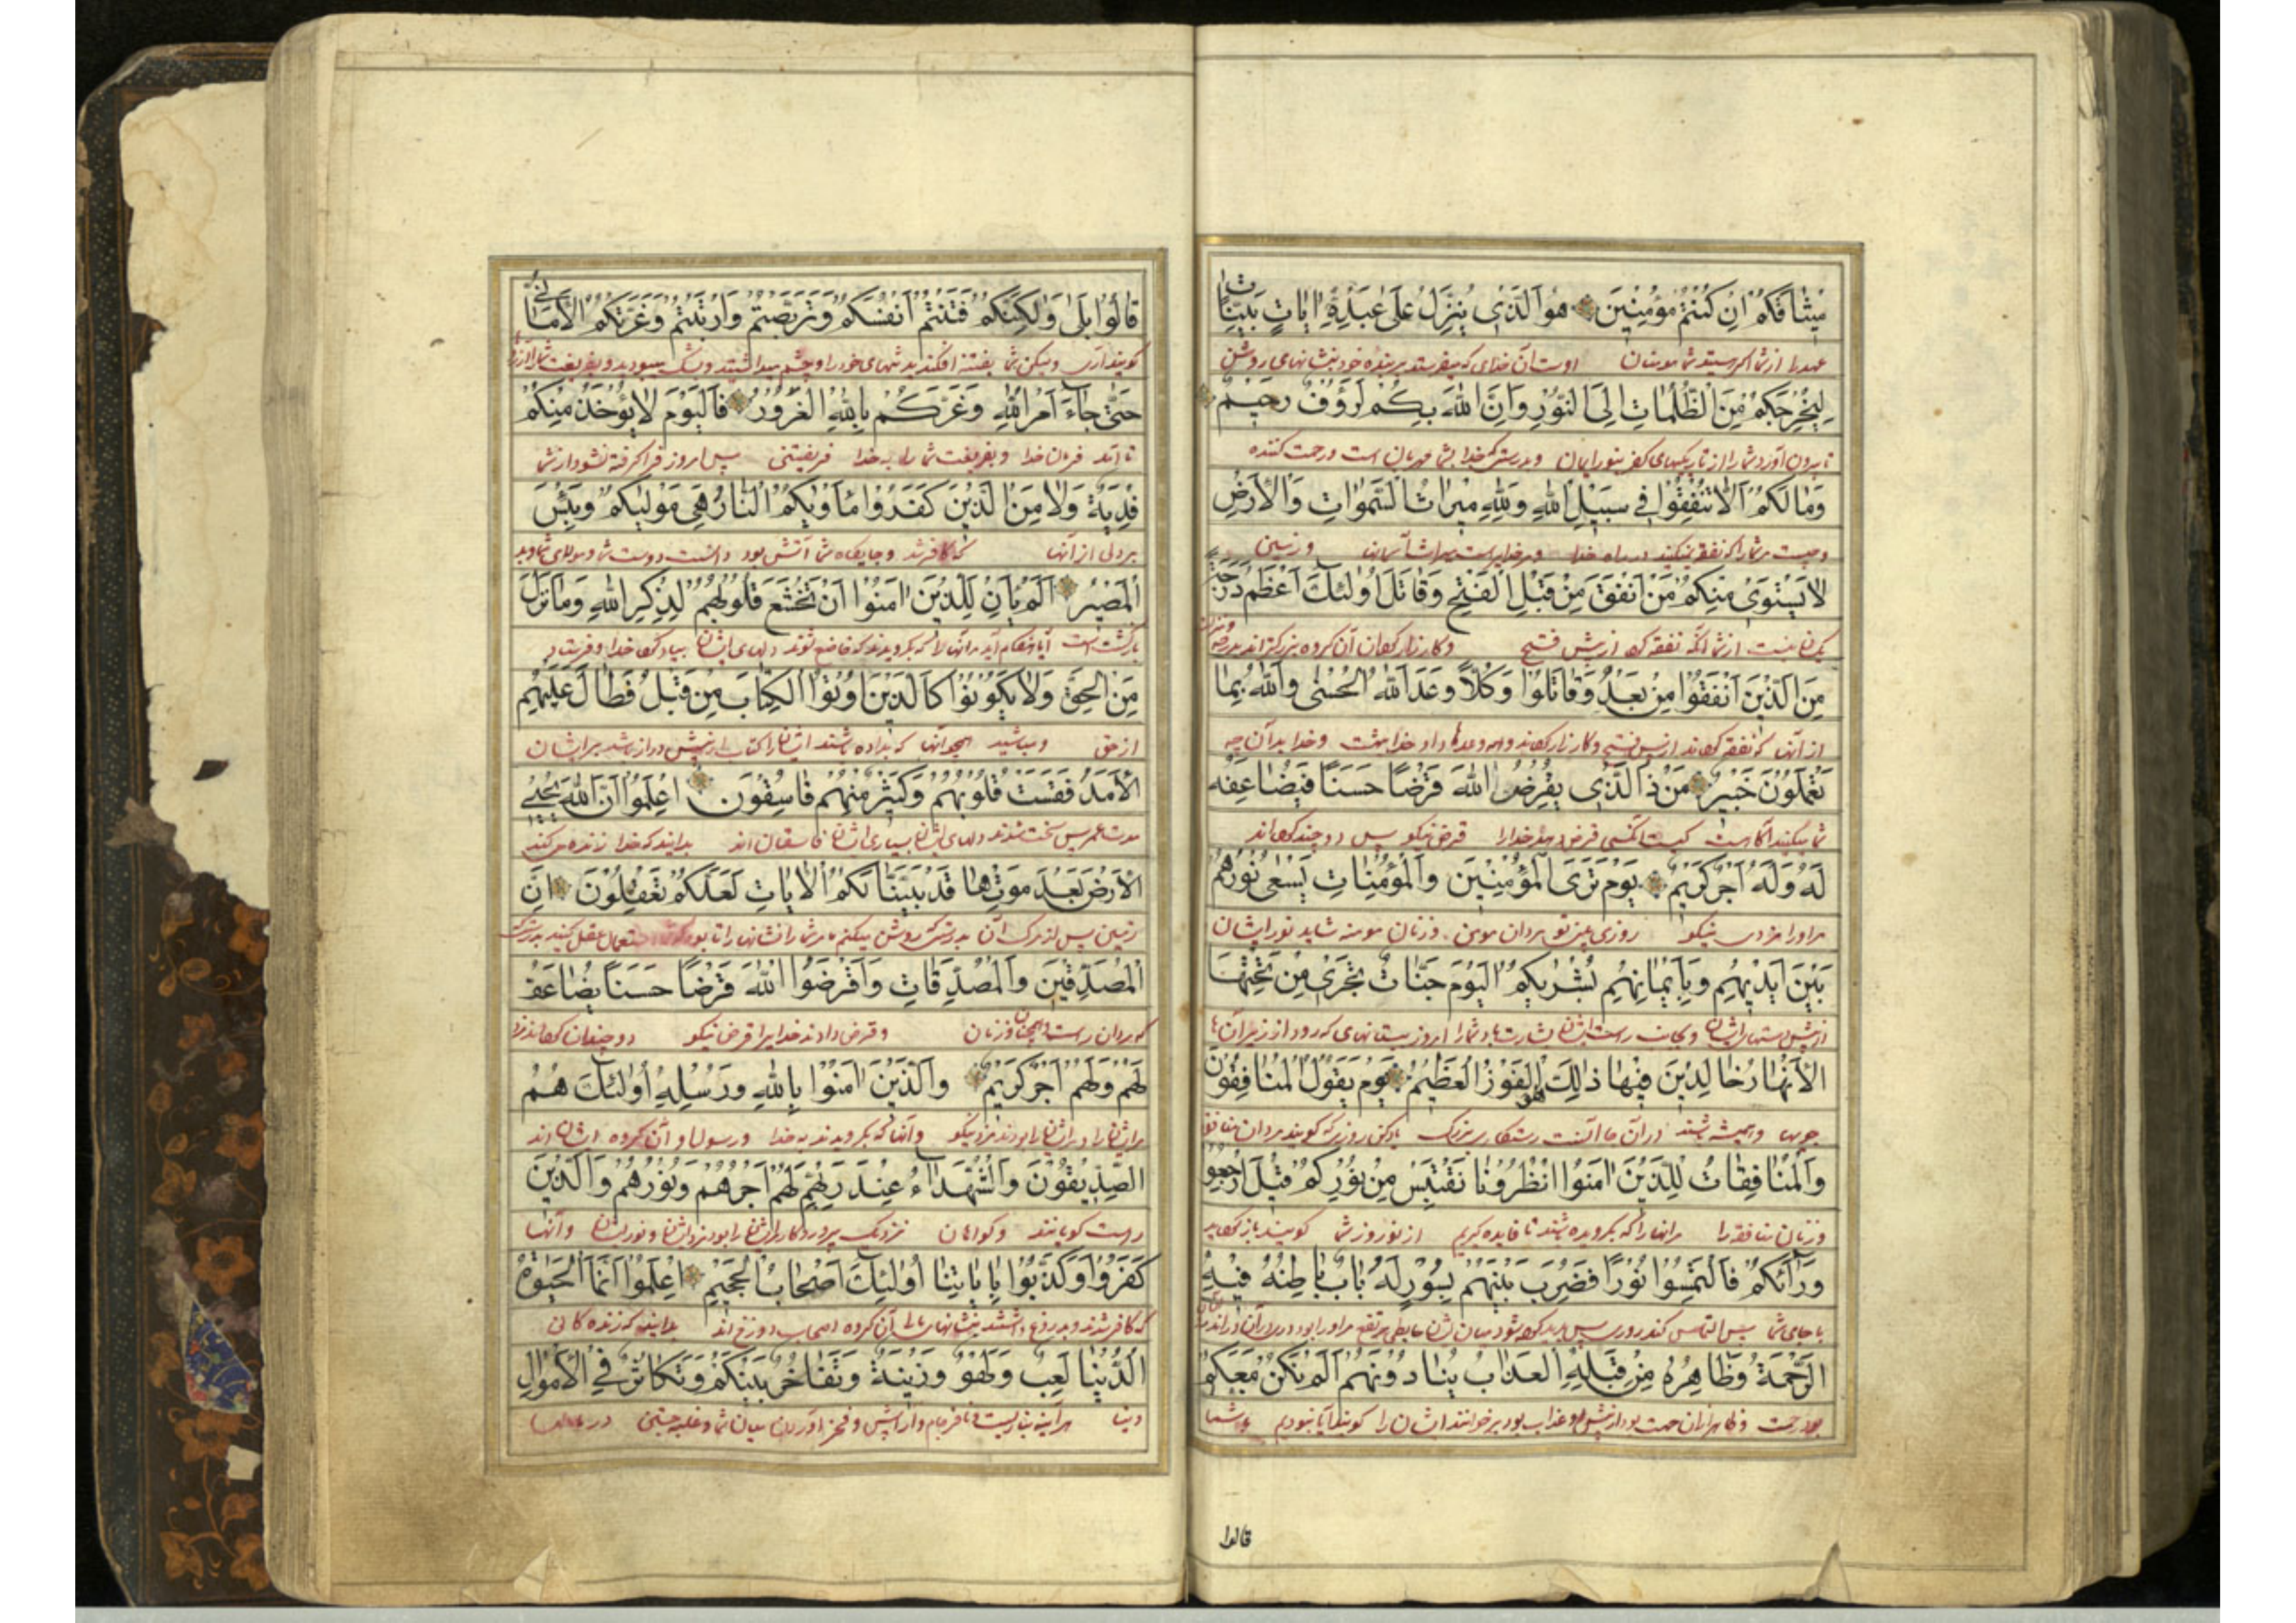 مِيثَاقَكُمْ اِنْ كُنْتُمْ مُؤْمِنِينَ هُوَ الَّذِى يُنَزِّلُ عَلَى عَبْدِهِ اٰيَاتٍ بَيِّنَاتٍ
عهد را از شما اگر هستید شما مومنان اوست آن خدای که میفرستد بر بنده خود نشانهای روشن
لِيُخْرِجَكُمْ مِنَ الظُّلُمَاتِ اِلَى النُّورِ وَاِنَّ اللّٰهَ بِكُمْ لَرَؤُفٌ رَحِيمٌ
تا بیرون آورد شما را از تاریکیهای کفر بنور ایمان و بدرستی که خدا بشما مهربان است و رحمت کننده
وَمٰا لَكُمْ اَلّٰا تُنْفِقُوا فِى سَبِيلِ اللّٰهِ وَلِلّٰهِ مِيرَاثُ السَّمٰوَاتِ وَالْاَرْضِ
و چیست مر شما را که نفقه نمیکنید در راه خدا و مر خدایراست میراث آسمانها و زمین
لٰا يَسْتَوِى مِنْكُمْ مَنْ اَنْفَقَ مِنْ قَبْلِ الْفَتْحِ وَقَاتَلَ اُولٰئِكَ اَعْظَمُ دَرَجَةً
یکسان نیست از شما آنکه نفقه کرد از پیش فتح و کارزار کرد آن گروه بزرگتراند
مِنَ الَّذِينَ اَنْفَقُوا مِنْ بَعْدُ وَقَاتَلُوا وَكُلًّا وَعَدَ اللّٰهُ الْحُسْنٰى وَاللّٰهُ بِمٰا
از آنها که نفقه کرده‌اند از پس فتح و کارزار کرده‌اند و همه وعده داد خدا بهشت و خدا بدآن چه
تَعْمَلُونَ خَبِيرٌ مَنْ ذَا الَّذِى يُقْرِضُ اللّٰهَ قَرْضًا حَسَنًا فَيُضَاعِفَهُ
شما میکنید آگاهست کیست آنکسی قرض دهد خدا را قرض نیکو پس دو چند
لَهُ وَلَهُ اَجْرٌ كَرِيمٌ يَوْمَ تَرَى الْمُؤْمِنِينَ وَالْمُؤْمِنَاتِ يَسْعٰى نُورُهُمْ
مر او را مزدی نیکو روزی بینی تو مردان مومن و زنان مومنه شاید نور ایشان
بَيْنَ اَيْدِيهِمْ وَبِاَيْمَانِهِمْ بُشْرٰيكُمُ الْيَوْمَ جَنَّاتٌ تَجْرِى مِنْ تَحْتِهَا
از پیش دستهای ایشان بشارت باد شما را امروز بستانهای که رود از زیر آن
الْاَنْهَارُ خَالِدِينَ فِيهَا ذٰلِكَ هُوَ الْفَوْزُ الْعَظِيمُ يَوْمَ يَقُولُ الْمُنَافِقُونَ
جویها و همیشه باشند در آن جا آنست رستگاری بزرگ یاد کن روزی که گویند مردان منافق
وَالْمُنَافِقَاتُ لِلَّذِينَ اٰمَنُوا انْظُرُونَا نَقْتَبِسْ مِنْ نُورِكُمْ قِيلَ ارْجِعُوا
و زنان منافقه را مر آنها را که بگرویده باشند تا فایده گیریم از نور شما گویند باز
وَرٰآئَكُمْ فَالْتَمِسُوا نُورًا فَضُرِبَ بَيْنَهُمْ بِسُورٍ لَهُ بَابٌ بَاطِنُهُ فِيهِ
با جای شما پس التماس کند
الرَّحْمَةُ وَظَاهِرُهُ مِنْ قِبَلِهِ الْعَذَابُ يُنَادُونَهُمْ اَلَمْ نَكُنْ مَعَكُمْ
بود رحمت عذاب بود خوانند ایشان را گویند آیا نبودیم با شما
قالوا
قَالُوا بَلٰى وَلٰكِنَّكُمْ فَتَنْتُمْ اَنْفُسَكُمْ وَتَرَبَّصْتُمْ وَارْتَبْتُمْ وَغَرَّتْكُمُ الْاَمَانِىُّ
گویند آری ولیکن شما بفتنه افکندید تنهای خود را و چشم میداشتید و بشک میبودید و بفریفت شما را آرزوها
حَتّٰى جَاءَ اَمْرُ اللّٰهِ وَغَرَّكُمْ بِاللّٰهِ الْغَرُورُ فَالْيَوْمَ لٰا يُؤْخَذُ مِنْكُمْ
تا آمد فرمان خدا و بفریفت شما را به خدا فریفتنی پس امروز فرا گرفته نشود از شما
فِدْيَةٌ وَلٰا مِنَ الَّذِينَ كَفَرُوا مَأْوٰيكُمُ النَّارُ هِىَ مَوْلٰيكُمْ وَبِئْسَ
از آنها که کافر شد و جایگاه شما آتش بود
الْمَصِيرُ اَلَمْ يَأْنِ لِلَّذِينَ اٰمَنُوا اَنْ تَخْشَعَ قُلُوبُهُمْ لِذِكْرِ اللّٰهِ وَمَا نَزَلَ
بازگشت است آیا هنگام آنها را که بگرویدند که خاضع شوند دلهای ایشان بیاد خدا
مِنَ الْحَقِّ وَلٰا يَكُونُوا كَالَّذِينَ اُوتُوا الْكِتَابَ مِنْ قَبْلُ فَطَالَ عَلَيْهِمُ
از حق و مباشید همچو آنها که داده شدند ایشان را کتاب از پیش دراز شد بر ایشان
الْاَمَدُ فَقَسَتْ قُلُوبُهُمْ وَكَثِيرٌ مِنْهُمْ فَاسِقُونَ اِعْلَمُوا اَنَّ اللّٰهَ يُحْيِى
مدت عمر پس سخت شدند دلهای ایشان بسیاری ایشان فاسقان اند بدانید که خدا زنده می کند
الْاَرْضَ بَعْدَ مَوْتِهَا قَدْ بَيَّنَّا لَكُمُ الْاٰيَاتِ لَعَلَّكُمْ تَعْقِلُونَ اِنَّ
زمین پس از مرگ آن بدرستی روشن میکنم مر شما را نشانها را
الْمُصَّدِّقِينَ وَالْمُصَّدِّقَاتِ وَاَقْرَضُوا اللّٰهَ قَرْضًا حَسَنًا يُضَاعَفُ
که مردان راست و زنان و قرض دادند خدایرا قرض نیکو دو چندان
لَهُمْ وَلَهُمْ اَجْرٌ كَرِيمٌ وَالَّذِينَ اٰمَنُوا بِاللّٰهِ وَرُسُلِهِ اُولٰئِكَ هُمُ
مر ایشان را مزد نیکو و آنها که بگرویدند به خدا و رسول او آن گروه ایشان اند
الصِّدِّيقُونَ وَالشُّهَدَاءُ عِنْدَ رَبِّهِمْ لَهُمْ اَجْرُهُمْ وَنُورُهُمْ وَالَّذِينَ
راست گویانند و گواهان نزدیک پروردگار ایشان را بود مزد ایشان و نور ایشان و آنها
كَفَرُوا وَكَذَّبُوا بِاٰيَاتِنَا اُولٰئِكَ اَصْحَابُ الْجَحِيمِ اِعْلَمُوا اَنَّمَا الْحَيٰوةُ
که کافر شدند و بدروغ داشتند نشانهای ما را آن گروه اصحاب دوزخ اند بدانید که زندگانی
الدُّنْيَا لَعِبٌ وَلَهْوٌ وَزِينَةٌ وَتَفَاخُرٌ بَيْنَكُمْ وَتَكَاثُرٌ فِى الْاَمْوَالِ
دنیا و آرایش و فخر آوردن میان شما در مالها